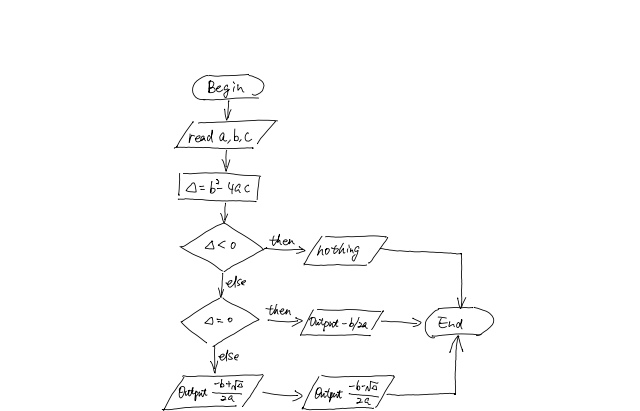 Begin
read a, b, c
Δ = b² - 4ac
Δ < 0
then
nothing
else
Δ = 0
then
Output -b/2a
End
else
Output (-b+√Δ)/2a
Output (-b-√Δ)/2a